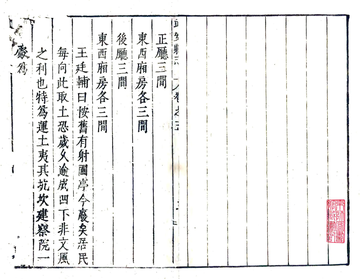 正廳三間
東西廂房各三間
後廳三間
東西廂房各三間
王廷輔曰按舊有射圃亭今廢矣居民
每向此取土恐歲久逾成凹下非文風
之利也特爲運土夷其坑坎建察院一